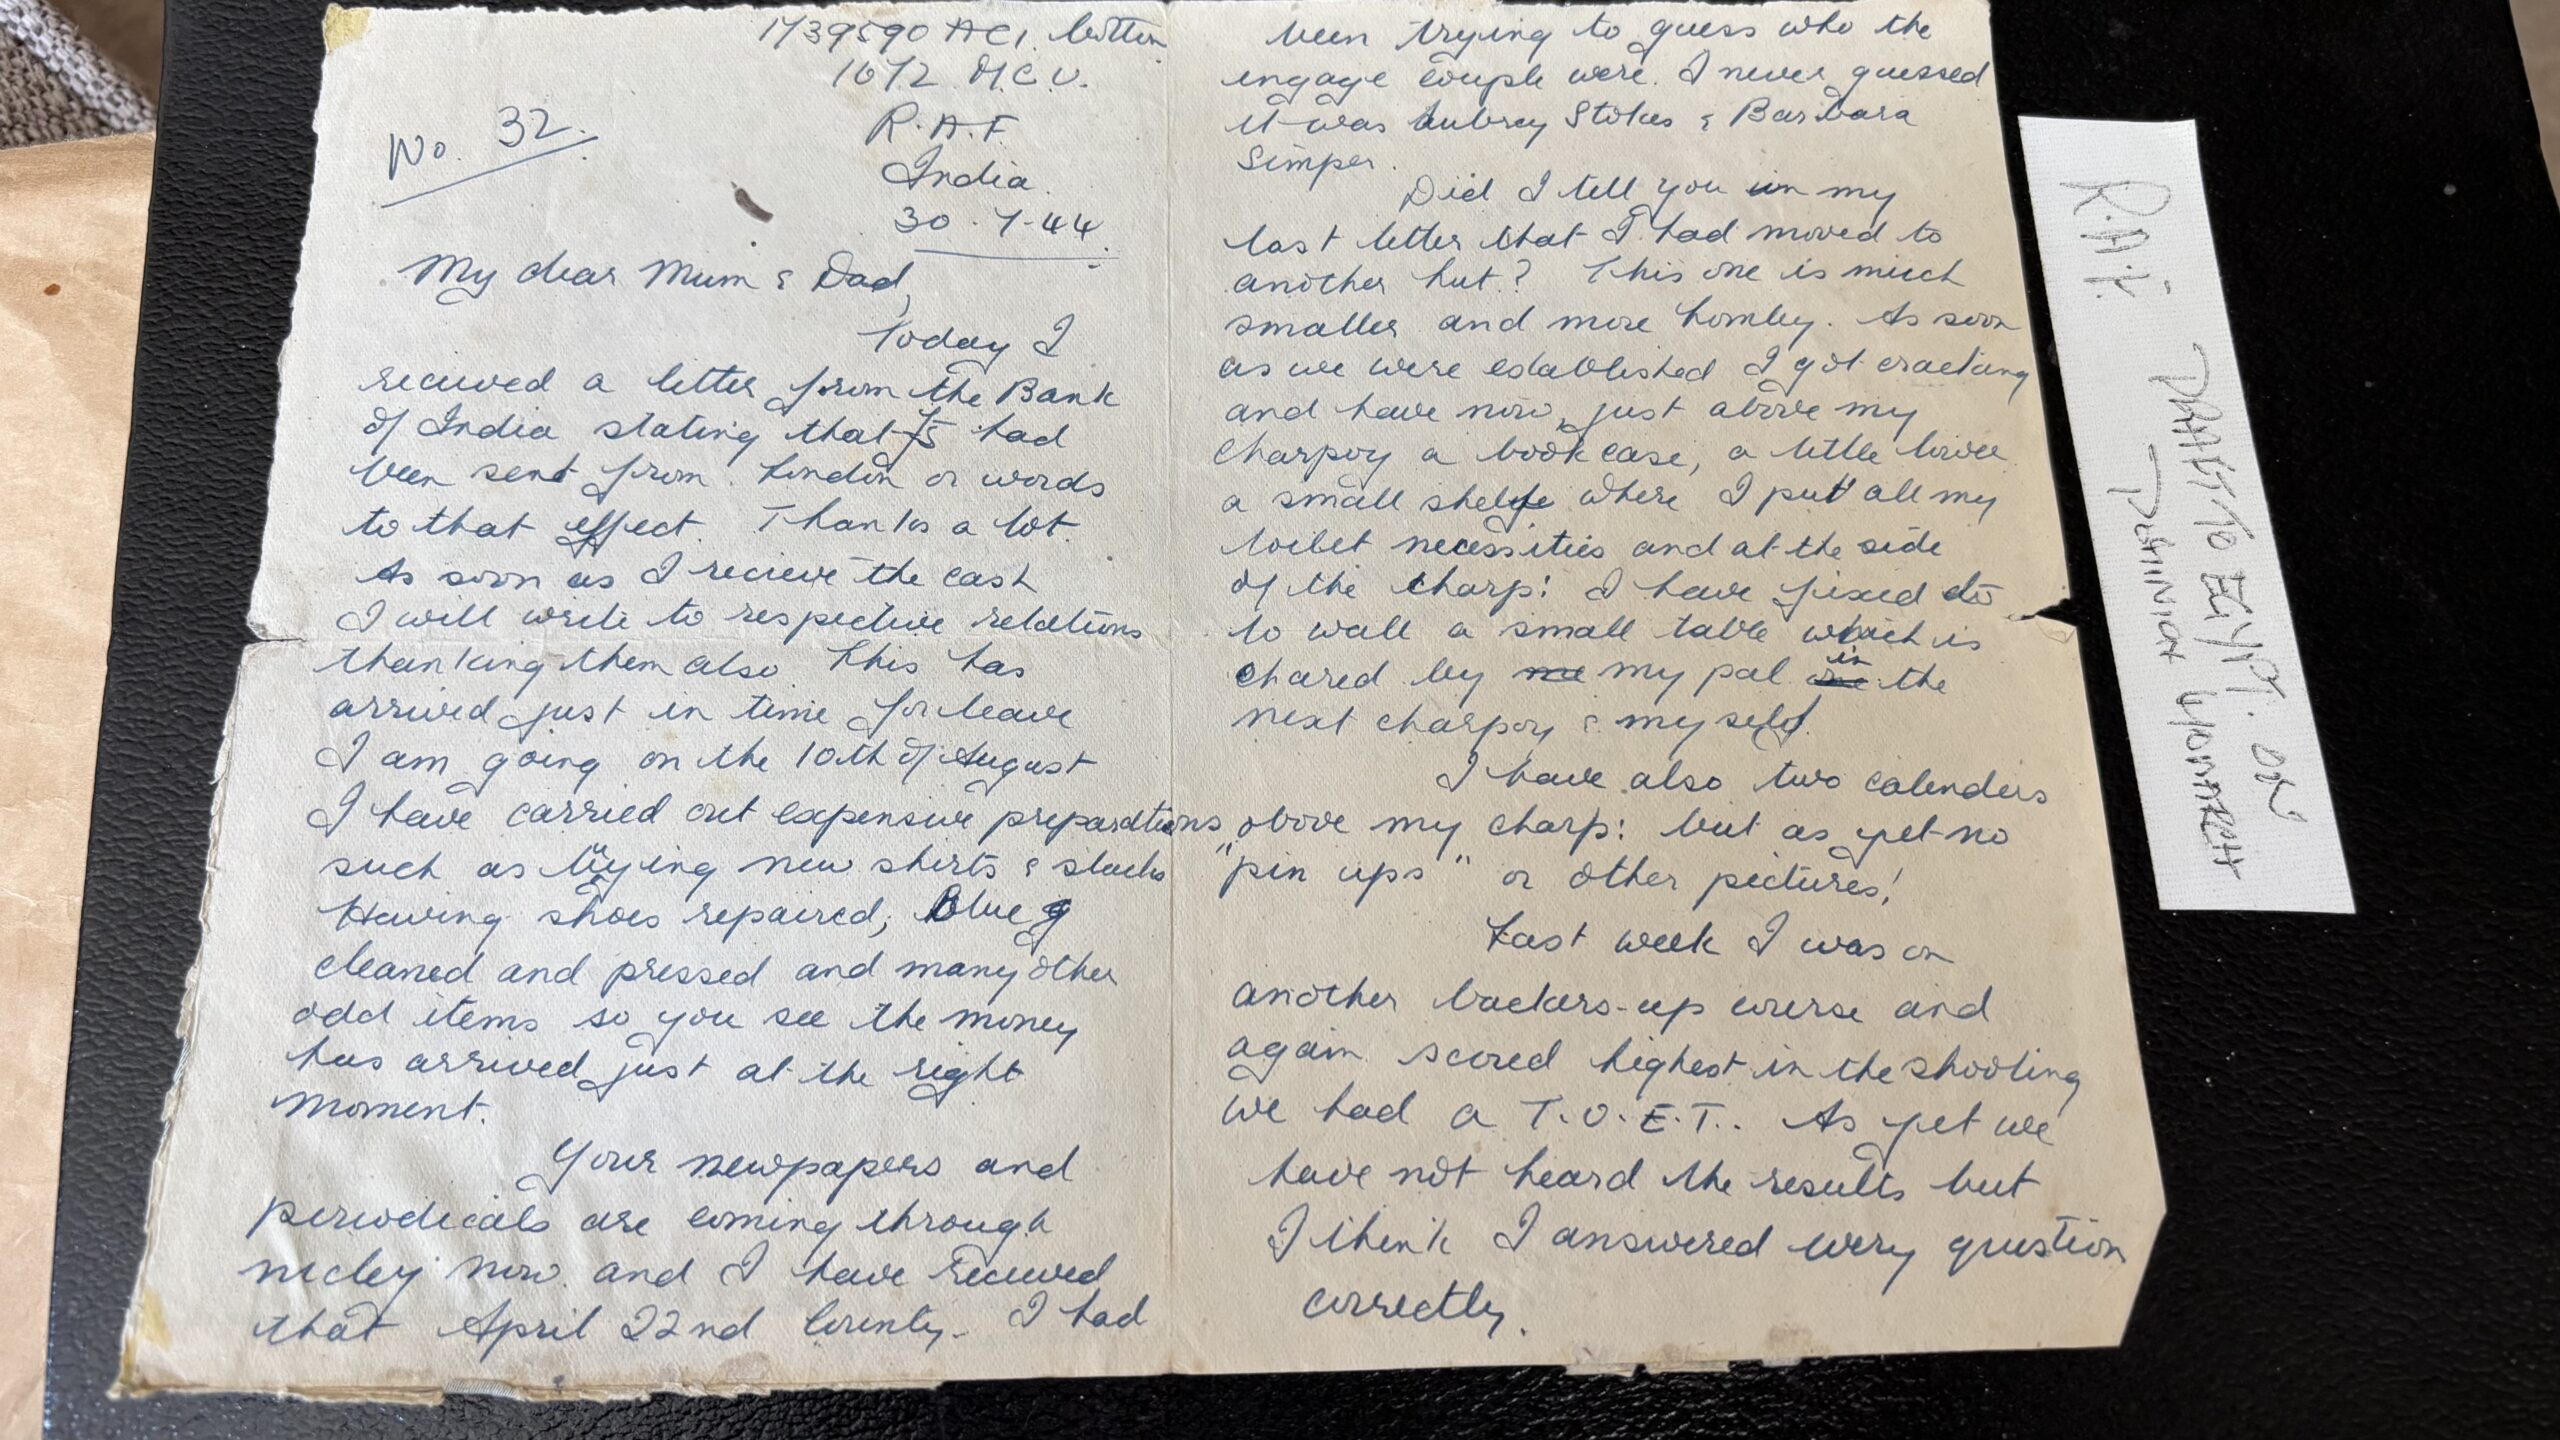 1739590 AC1.
1672 M.C.U.
R.A.F.
India.
30.7.44.
No. 32.
My dear Mum & Dad,
Today I
received a letter from the Bank
of India stating that £5 had
been sent from London or words
to that effect. Thanks a lot.
As soon as I recieve the cash
I will write to respective relations
thanking them also This has
arrived just in time for leave
I am going on the 10th of August
I have carried out expensive preparations
such as new shirts & slacks
Having shoes repaired, Blue
cleaned and pressed and many other
odd items so you see the money
has arrived just at the right
moment.
Your newpapers and
periodicals are coming through
nicley now and I have received
that April 22nd I had
been trying to guess who the
engage couple were. I never guessed
it was Aubrey Stokes & Barbara
Simper.
Did I tell you in my
last letter that I had moved to
another hut? This one is much
smaller and more homley. As soon
as we were established I got cracking
and have now, just above my
charpoy a book case, a little lower
a small shelfe where I put all my
toilet necessities and at the side
of the charp: I have fixed
to wall a small table which is
chared by my pal in the
next charpoy & myself.
I have also two calenders
above my charp: but as yet no
"pin ups" or other pictures!
Last week I was on
another backers-up course and
again scored highest in the shooting
we had a T.O.E.T.. As yet we
have not heard the results but
I think I answered every question
correctly.
R.A.F.
DRAFT TO EGYPT. ON